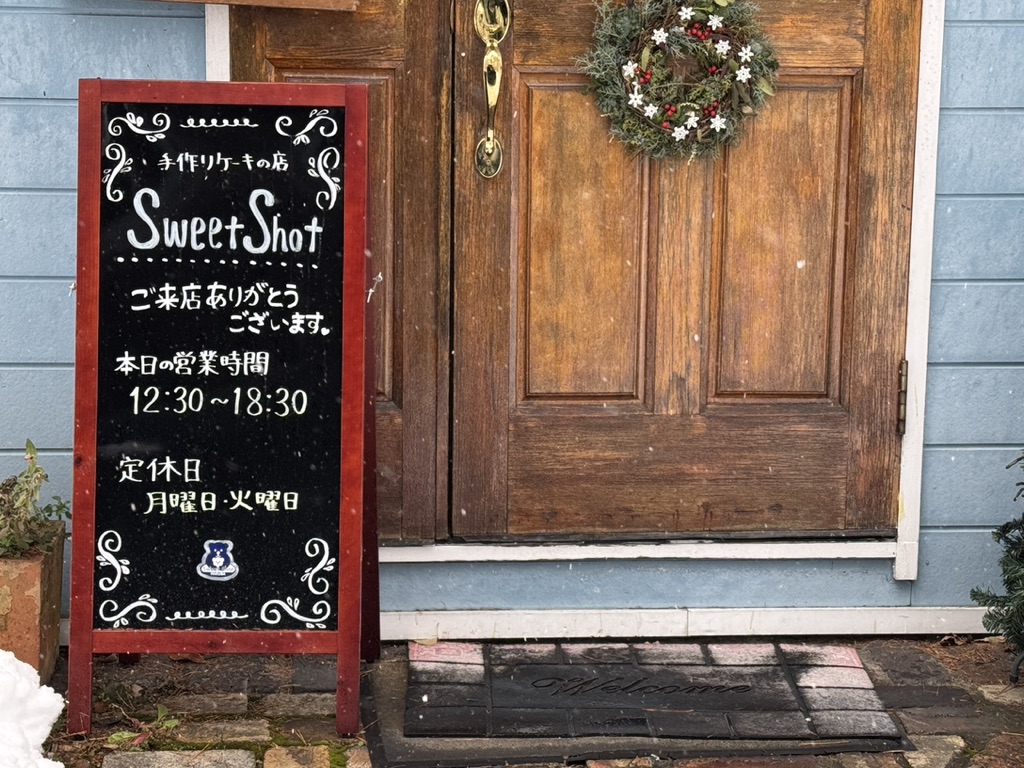 手作りケーキの店
Sweet Shot
ご来店ありがとう
ございます。
本日の営業時間
12:30～18:30
定休日
月曜日・火曜日
Welcome